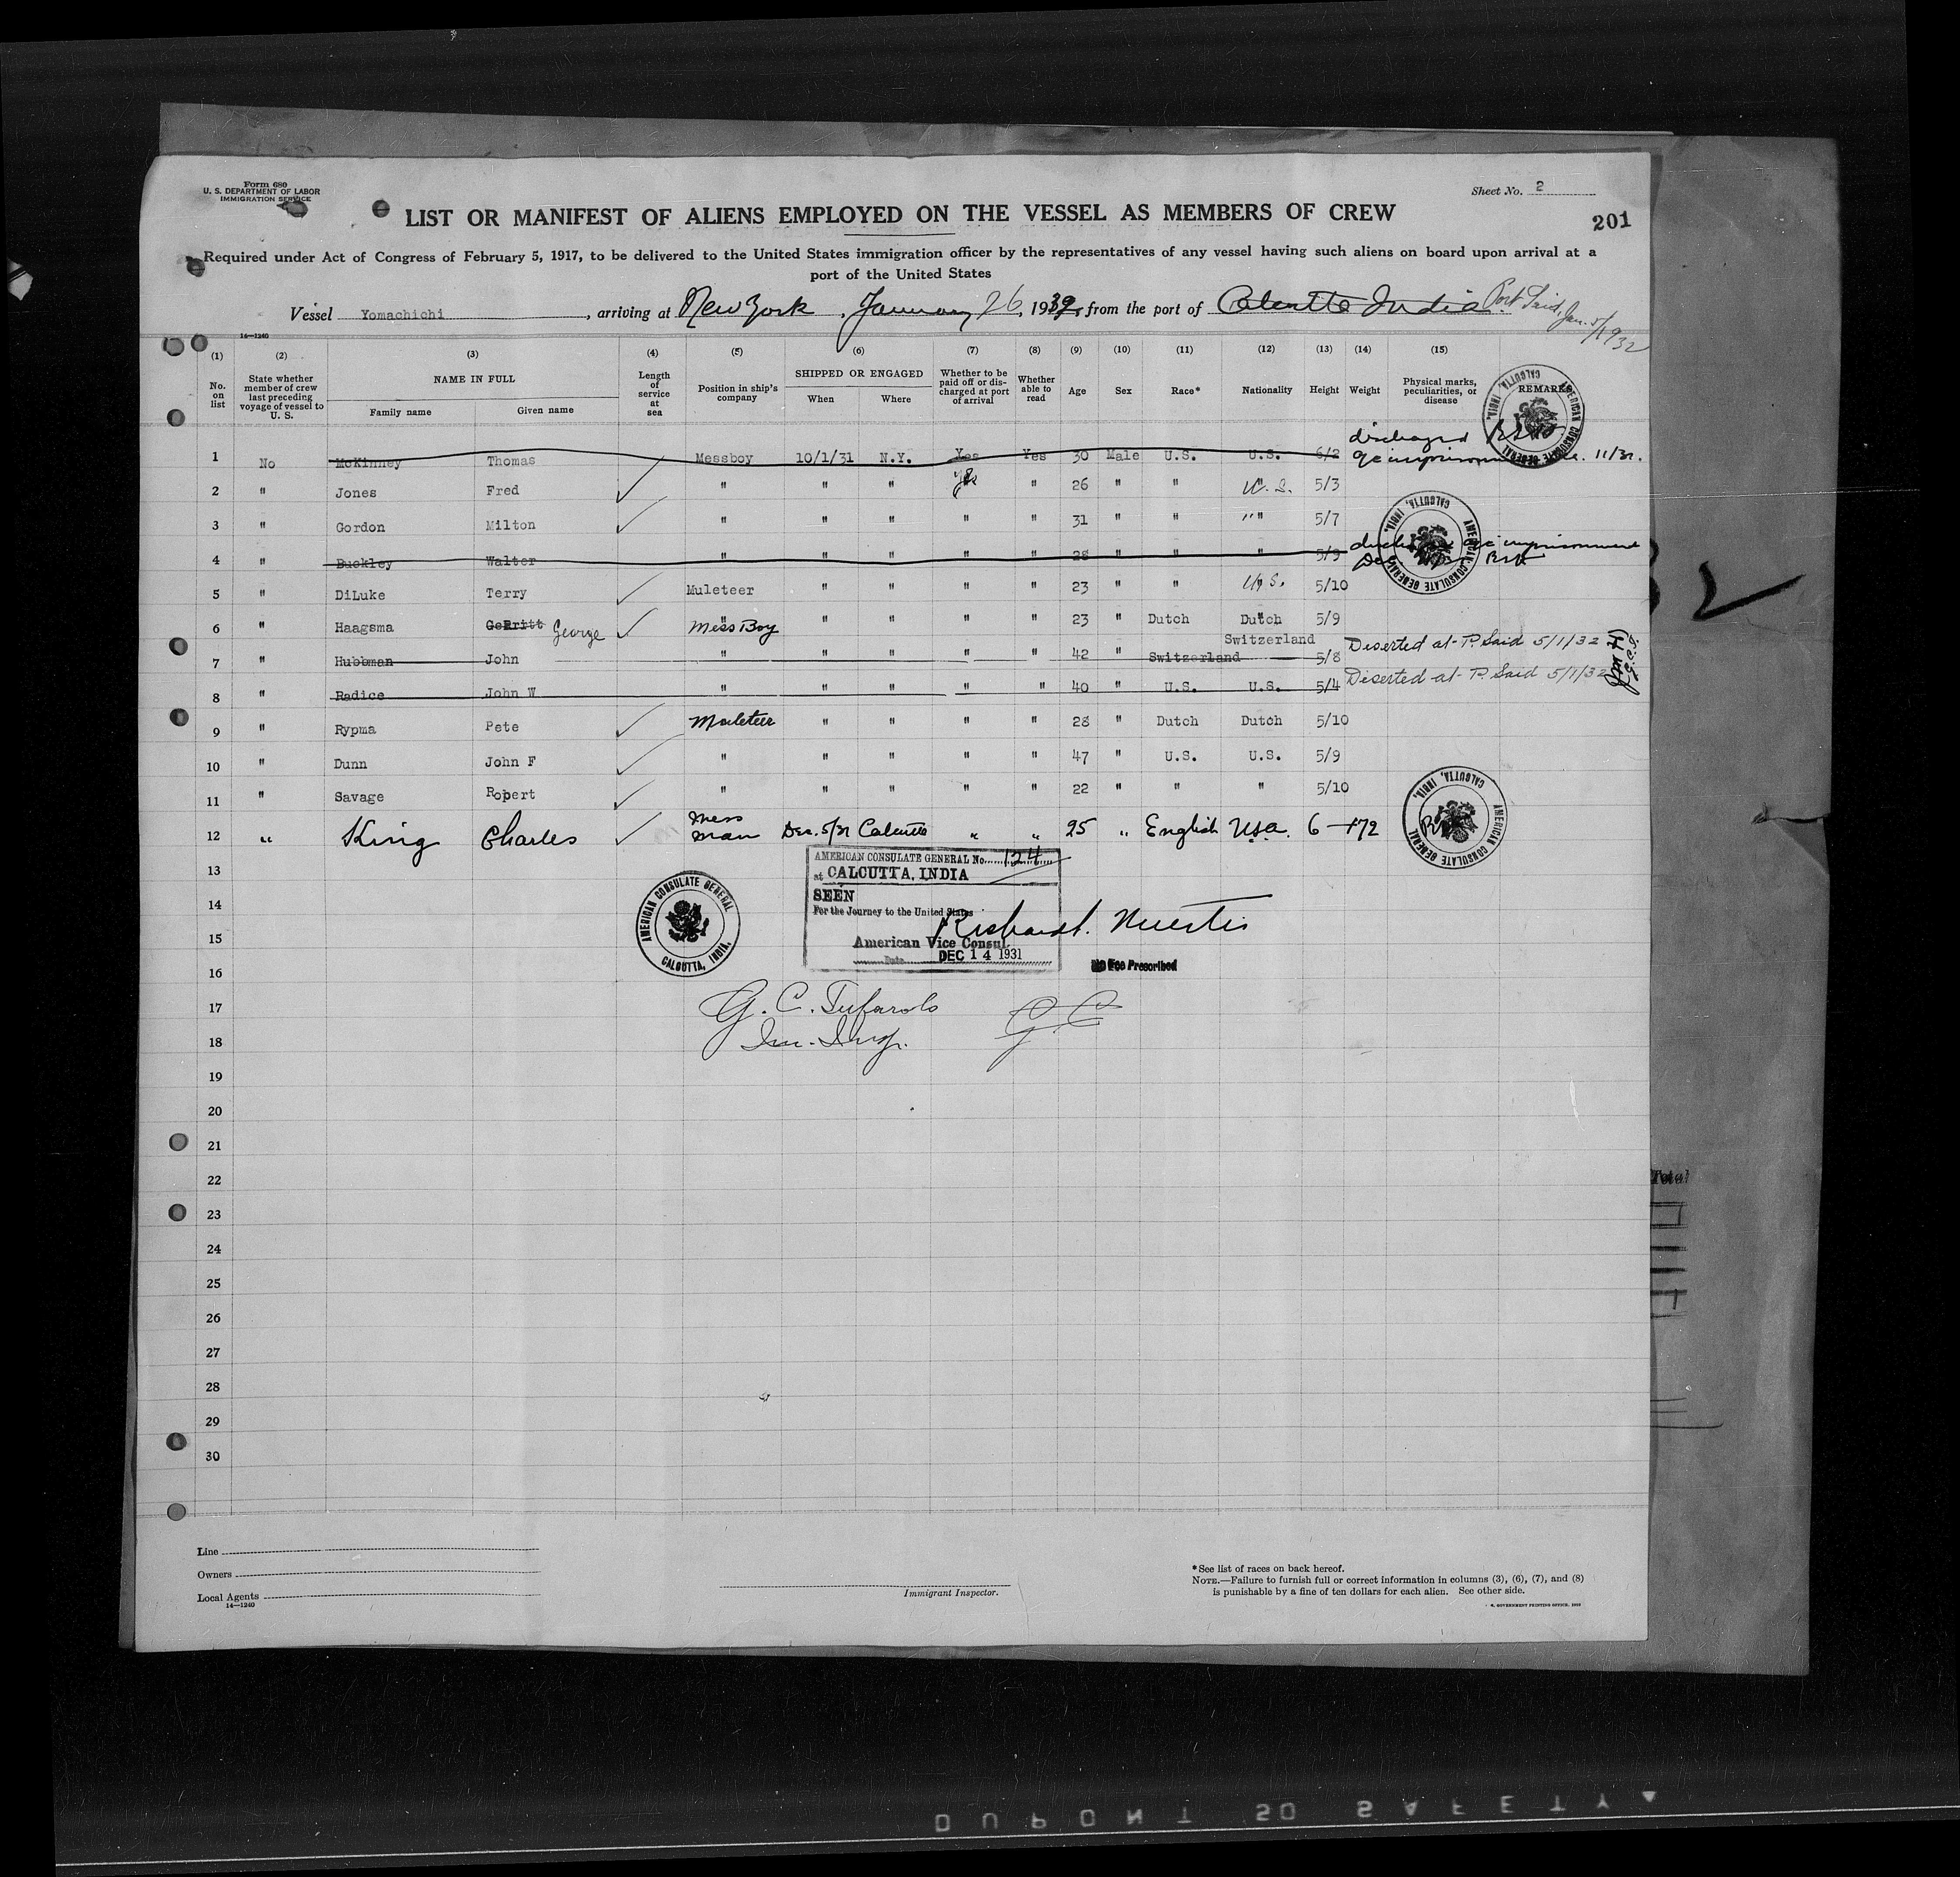 Form 680
U. S. DEPARTMENT OF LABOR
IMMIGRATION SERVICE
Sheet No. 2
LIST OR MANIFEST OF ALIENS EMPLOYED ON THE VESSEL AS MEMBERS OF CREW
201
Required under Act of Congress of February 5, 1917, to be delivered to the United States immigration officer by the representatives of any vessel having such aliens on board upon arrival at a
port of the United States
Vessel Yomachichi, arriving at New York, January 26, 1932, from the port of Calcutta India. Port Said, Jan. 5/1932
14—1240
(1) (2) (3) (4) (5) (6) (7) (8) (9) (10) (11) (12) (13) (14) (15)
No. on list
State whether member of crew last preceding voyage of vessel to U. S.
NAME IN FULL
Family name Given name
Length of service at sea
Position in ship's company
SHIPPED OR ENGAGED
When Where
Whether to be paid off or discharged at port of arrival
Whether able to read
Age Sex Race* Nationality Height Weight
Physical marks, peculiarities, or disease
REMARKS
1 No McKinney Thomas Messboy 10/1/31 N.Y. Yes Yes 30 Male U.S. U.S. 6/2 discharged 11/31.
2 " Jones Fred " " " yes " 26 " " U.S. 5/3
3 " Gordon Milton " " " " " 31 " " " " 5/7
4 " Buckley Walter " " " " " 28 " " " 5/9 imprisonment
5 " DiLuke Terry Muleteer " " " " 23 " " U.S. 5/10
6 " Haagsma Gerritt George " Mess Boy " " " " 23 " Dutch Dutch 5/9
7 " Hubbman John " " " " " 42 " Switzerland Switzerland 5/8 Deserted at P. Said 5/1/32
8 " Radice John W " " " " " 40 " U.S. U.S. 5/4 Deserted at P. Said 5/1/32
9 " Rypma Pete Muleteer " " " " 28 " Dutch Dutch 5/10
10 " Dunn John F " " " " " 47 " U.S. U.S. 5/9
11 " Savage Robert " " " " " 22 " " " 5/10
12 " King Charles Mess man Dec. 5/31 Calcutta " " 25 " English USA. 6 — 172
AMERICAN CONSULATE GENERAL CALCUTTA, INDIA.
AMERICAN CONSULATE GENERAL CALCUTTA, INDIA.
AMERICAN CONSULATE GENERAL CALCUTTA, INDIA.
13
AMERICAN CONSULATE GENERAL No. 124
at CALCUTTA, INDIA
AMERICAN CONSULATE GENERAL CALCUTTA, INDIA.
14
SEEN
For the Journey to the United States
15
American Vice Consul.
Date DEC 14 1931
No Fee Prescribed
16
17
G. C.
18
19
20
21
22
23
24
25
26
27
28
29
30
Total
Line
Owners
Local Agents
14—1240
Immigrant Inspector.
*See list of races on back hereof.
NOTE.—Failure to furnish full or correct information in columns (3), (6), (7), and (8)
is punishable by a fine of ten dollars for each alien. See other side.
DUPONT SO SAFETY